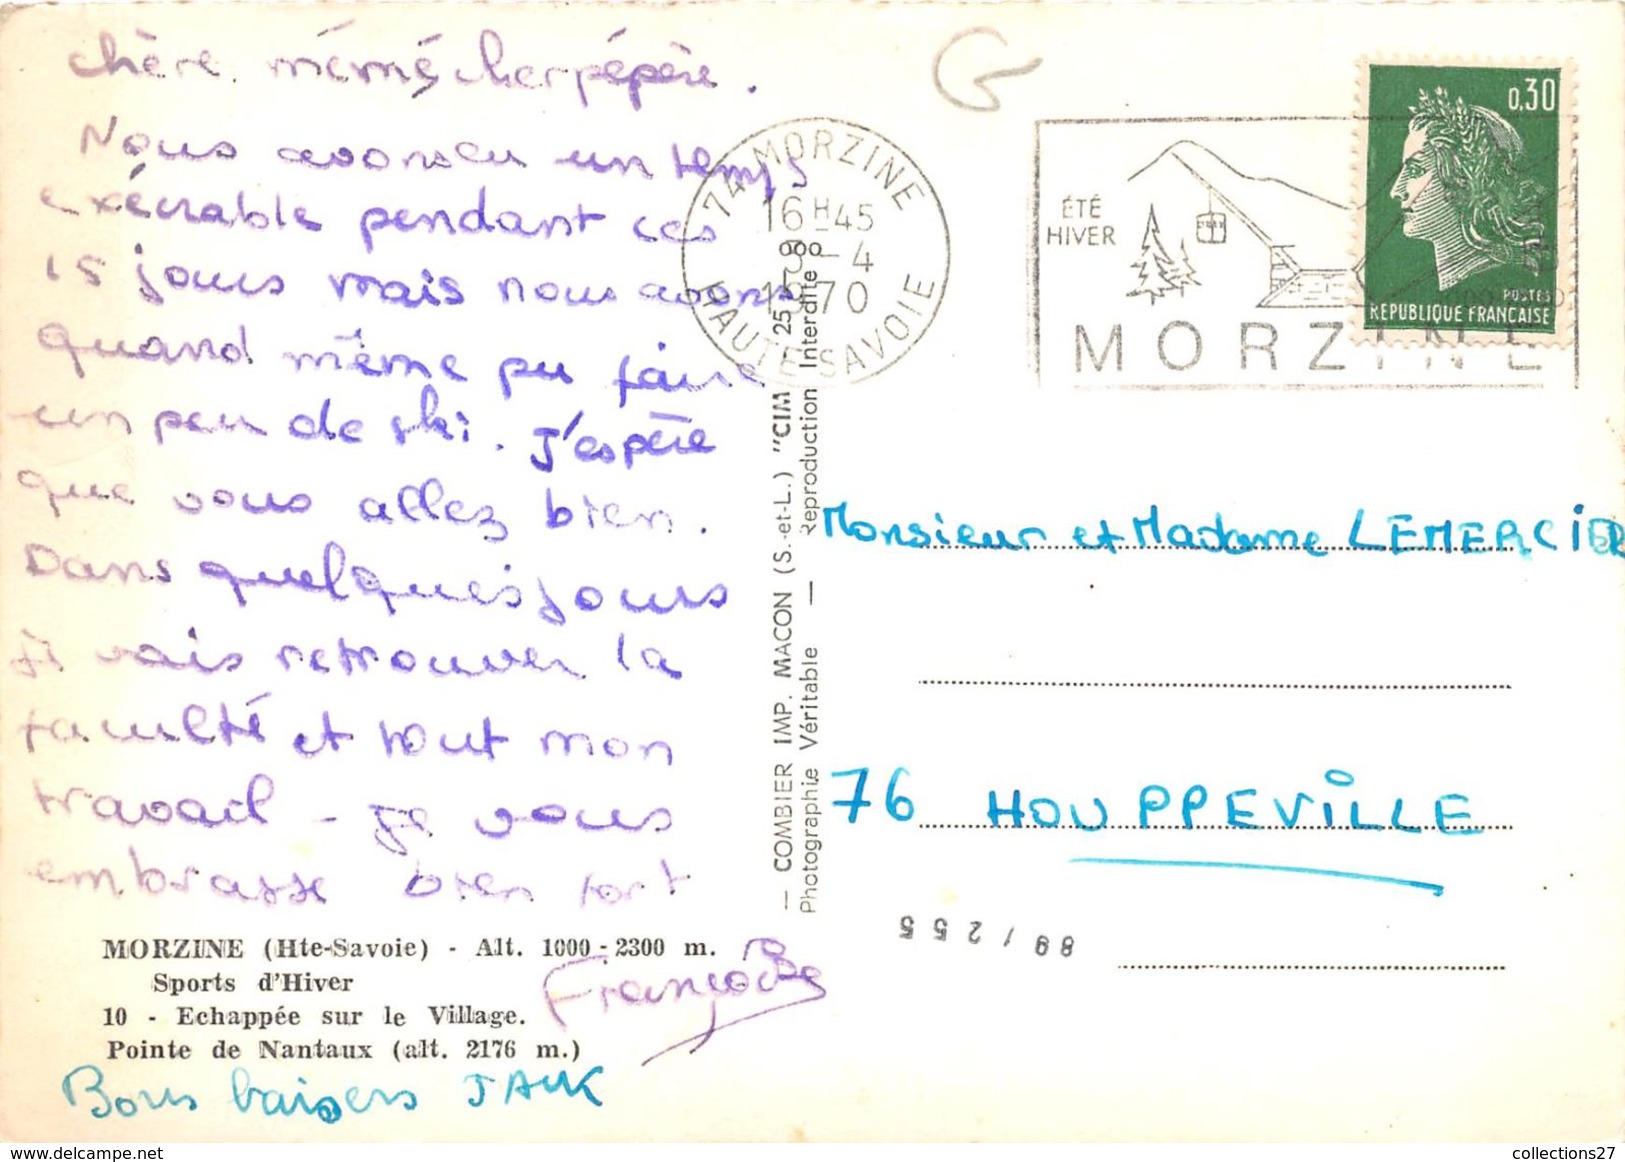 chère mémé cher pépère.
Nous avons eu un temps
exécrable pendant ces
15 jours mais nous avons
quand même pu faire
un peu de ski. J'espère
que vous allez bien.
Dans quelques jours
je vais retrouver la
faculté et tout mon
travail - je vous
embrasse bien fort
Françoise
Bons baisers
MORZINE (Hte-Savoie) - Alt. 1000 - 2300 m.
Sports d'Hiver
10 - Echappée sur le Village.
Pointe de Nantaux (alt. 2176 m.)
— COMBIER IMP. MACON (S.-et-L.) "CIM"
Photographie Véritable — Reproduction Interdite
74 MORZINE
16 H 45
-4
1970
HAUTE-SAVOIE
ÉTÉ
HIVER
MORZINE
0,30
POSTES
REPUBLIQUE FRANCAISE
Monsieur et Madame LEMERCIER
76 HOUPPEVILLE
88/255
delcampe.net
collections27